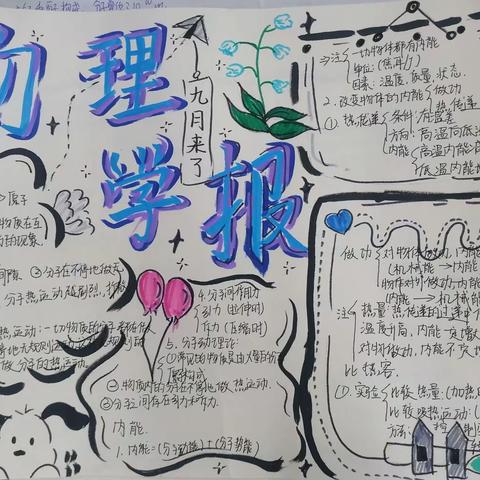 物理
学报
九月来了
注 一切物体都有内能
单位:(焦耳J)
因素:温度.质量.状态.
2.改变物体的内能 做功
热传递
① 热传递 条件:温度差
方向:高温向低温
内能 高温内能
低温内能
原子
的现象.
间隙. ③分子在不停地做无
分子热运动越剧烈,
热运动:一切物质的分子都在做
做分子的热运动.
4.分子间作用力
引力(拉伸时)
斥力(压缩时)
5.分子动理论:
①常见的物质是由大量的分
构成
②物质内的分子在不停地做热运动.
③分子之间存在引力和斥力.
内能.
1.内能=(分子动能)+(分子势能)
做功 对物体做功,内能
(机械能→内能)
物体对外做功,内能
(内能→机械能
注 热量:热传递的过程中
温度升高,内能一定增
对物做功,内能不一定
比热容.
①.实验 比较热量:(加热时
比较吸热运动:(
方法:控